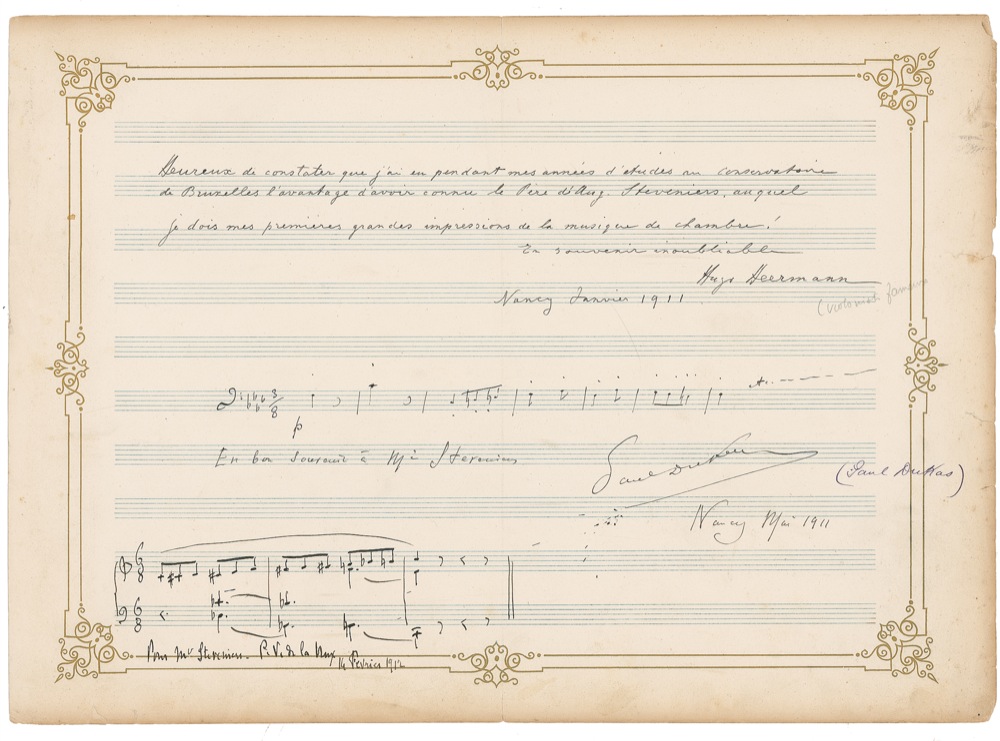 Heureux de constater que j'ai eu pendant mes années d'études au conservatoire
de Bruxelles l'avantage d'avoir connu le Père d'Aug. Steveniers, auquel
je dois mes premières grandes impressions de la musique de chambre!
En souvenir inoubliable
Hugo Heermann
Nancy Janvier 1911
(violoniste fameux
3/8
p
En bon souvenir à Mr Steveniers
Paul Dukas
(Paul Dukas)
Nancy Mai 1911
6/8
6/8
Pour Mr Steveniers. P. V. de la Nux
14 Février 1912